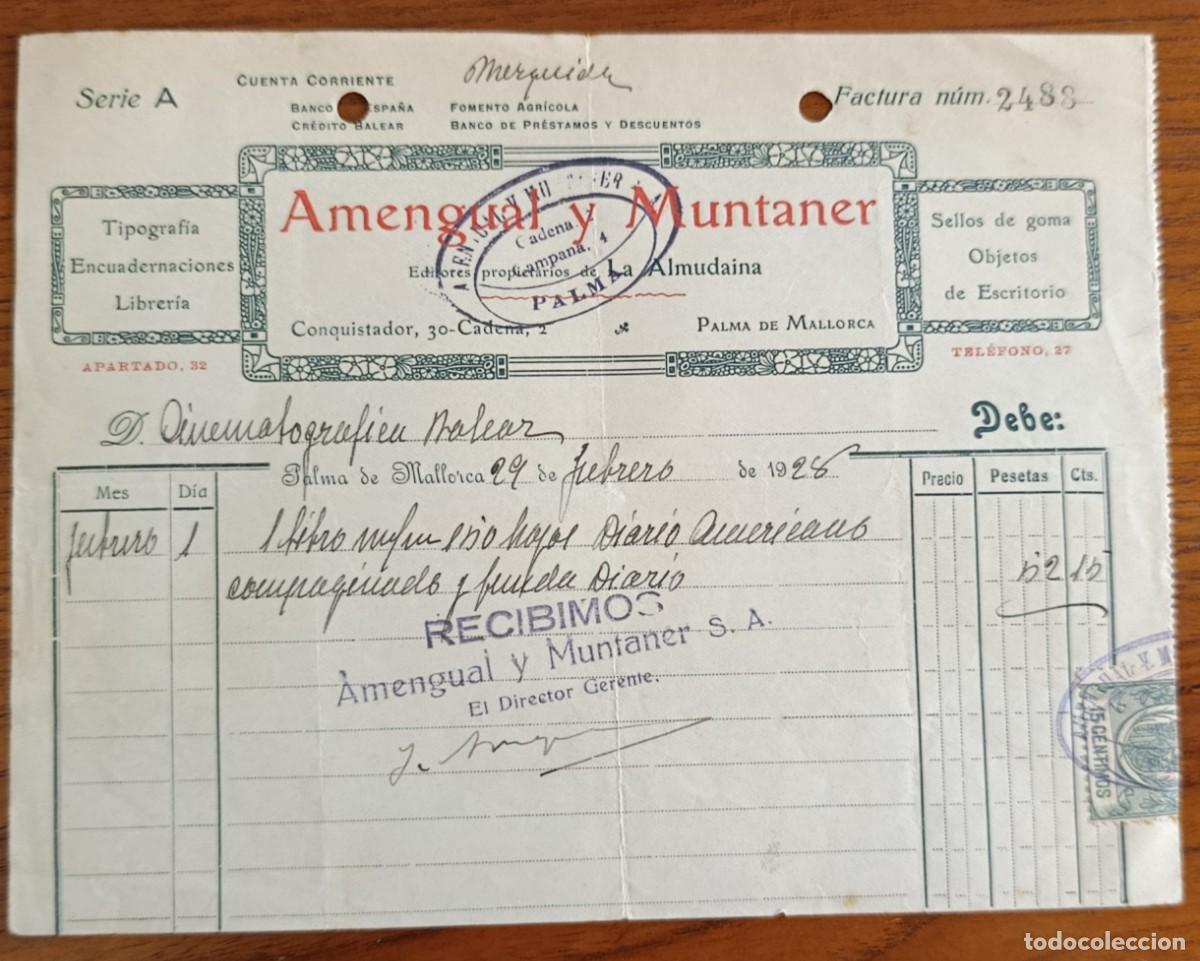 Serie A
CUENTA CORRIENTE
BANCO ESPAÑA FOMENTO AGRÍCOLA
CRÉDITO BALEAR BANCO DE PRÉSTAMOS Y DESCUENTOS
Factura núm. 2488
Tipografía
Encuadernaciones
Librería
APARTADO, 32
Amengual y Muntaner
Editores propietarios de La Almudaina
Conquistador, 30-Cadena, 2 PALMA DE MALLORCA
Cadena, 2
Campana, 4
PALMA
Sellos de goma
Objetos
de Escritorio
TELÉFONO, 27
D. Cinematografica Balear Debe:
Palma de Mallorca 29 de febrero de 1928
Mes Día Precio Pesetas Cts.
febrero 1 1 libro hojas Diario Americano
compaginado y funda Diario 52 15
RECIBIMOS
Amengual y Muntaner S. A.
El Director Gerente.
15 CENTIMOS
todocoleccion